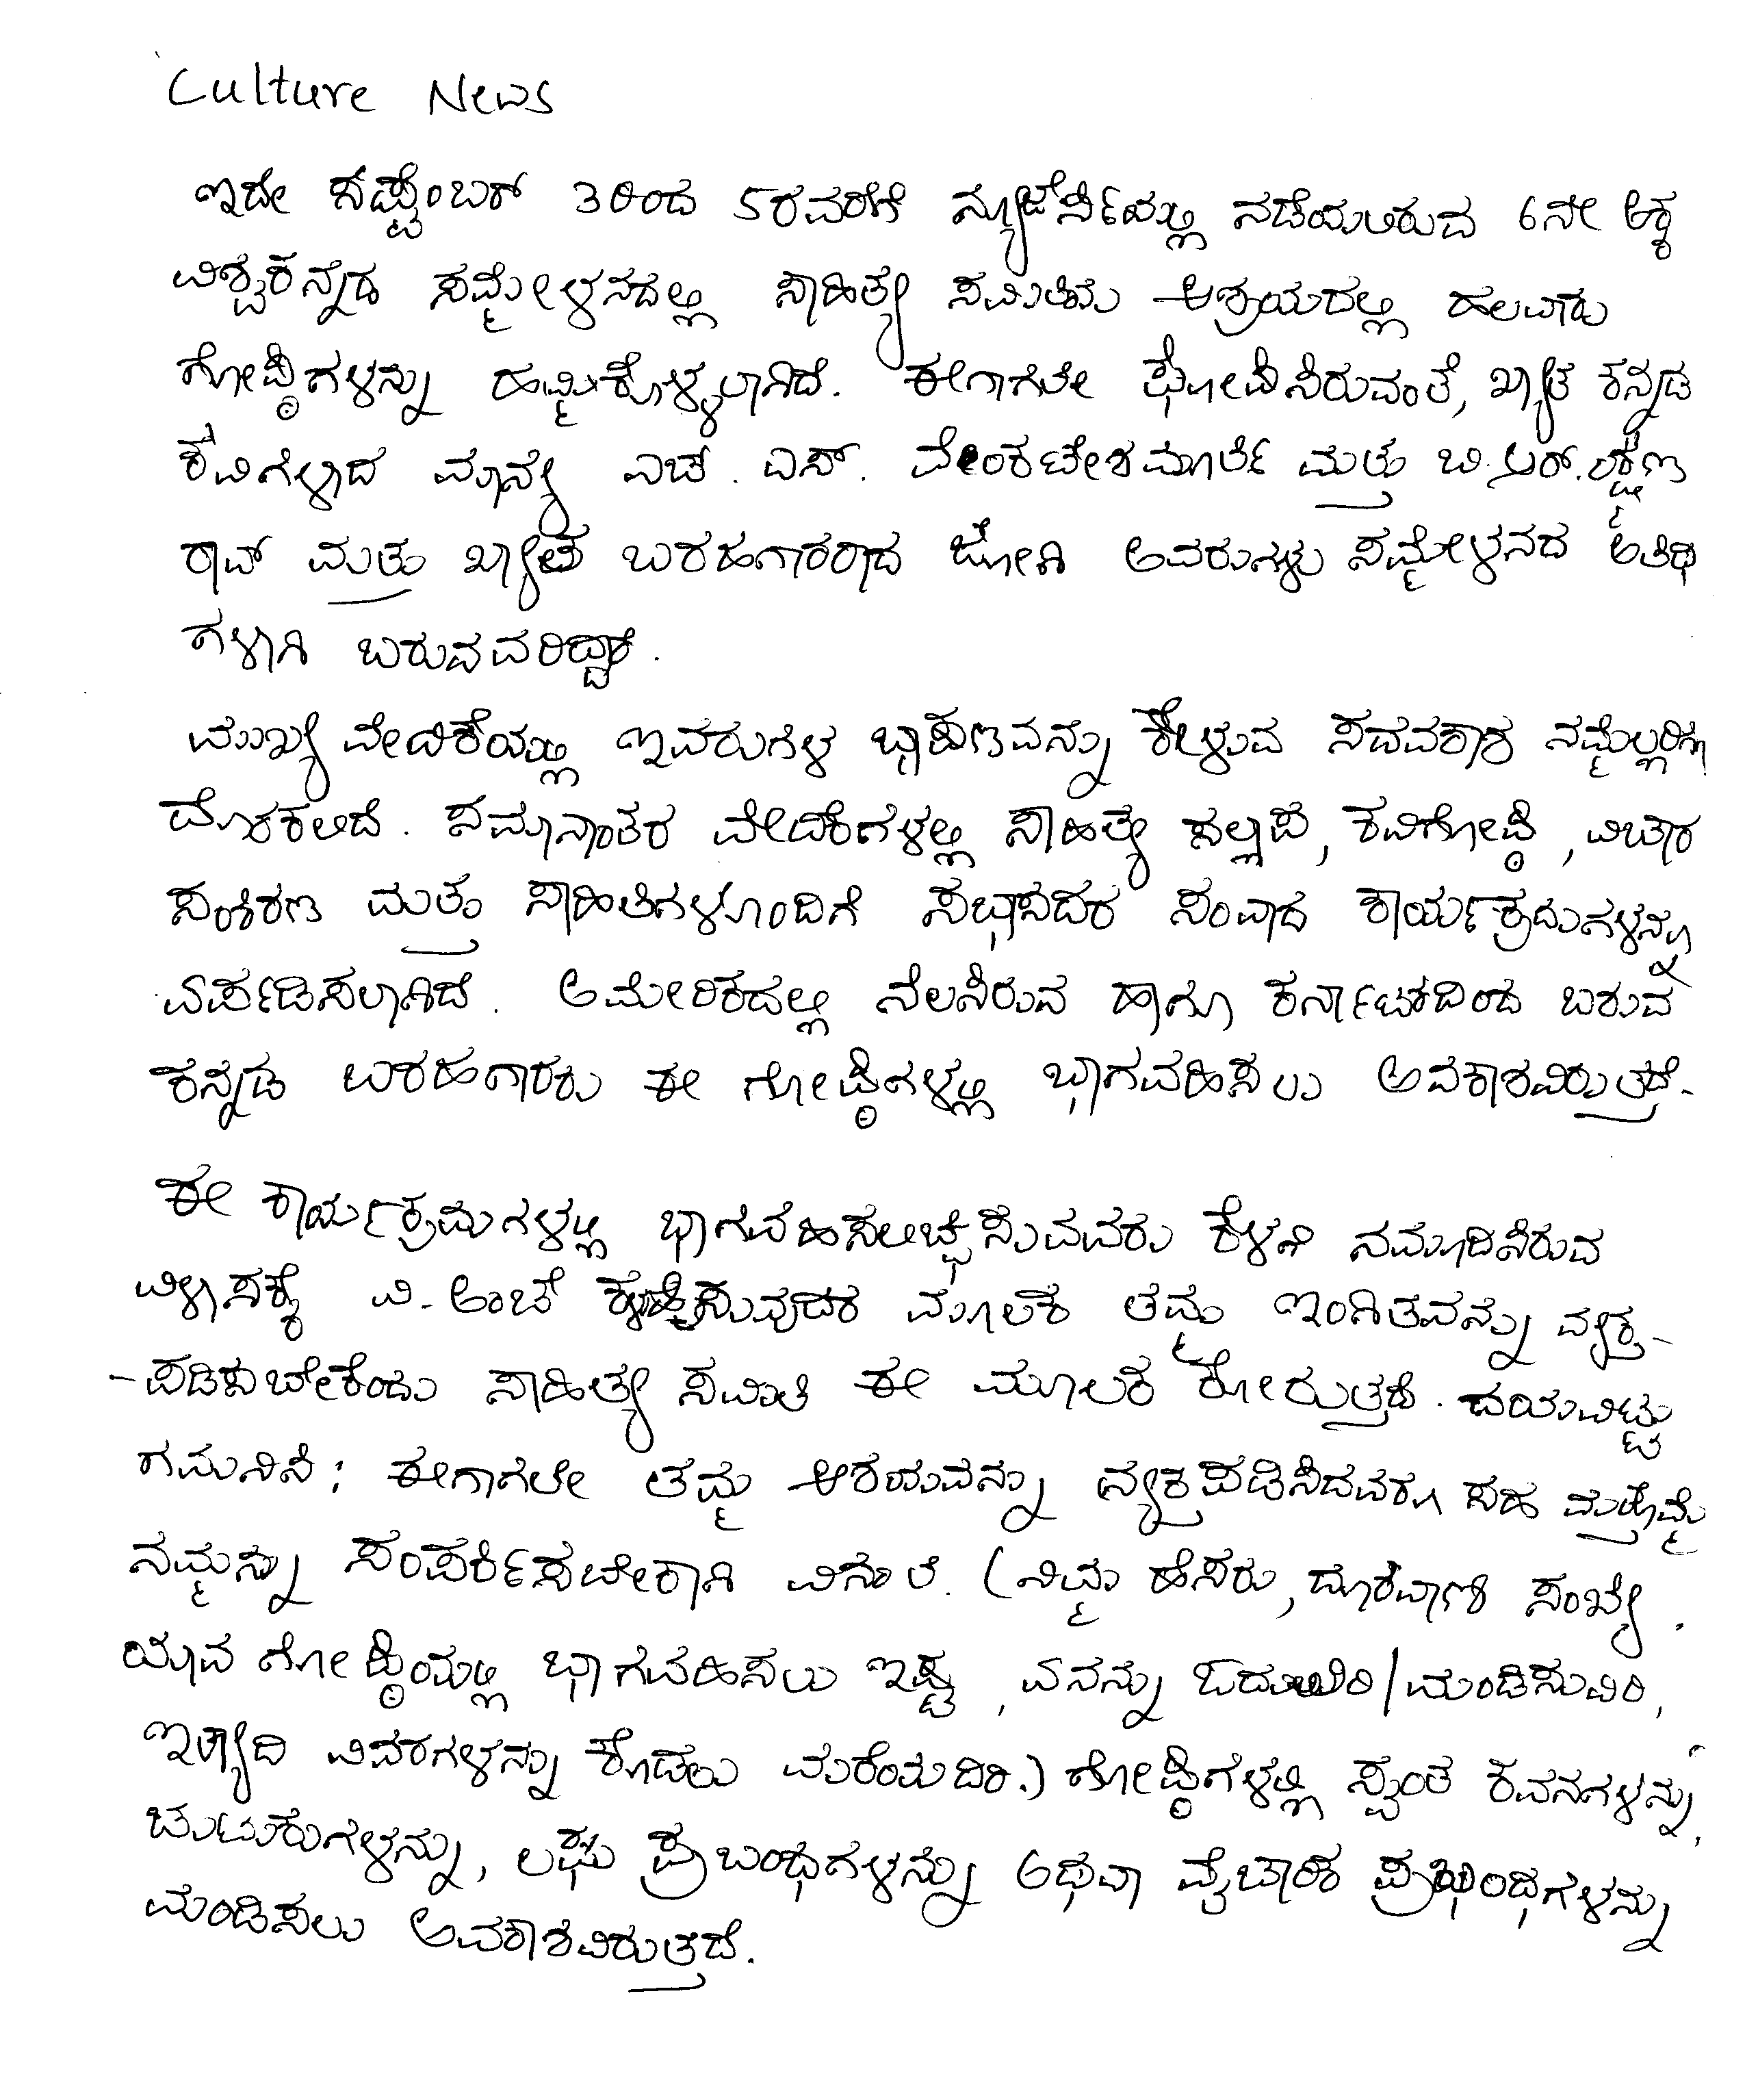 Culture News
ಇದೇ ಸಪ್ಟೆಂಬರ್ 3ರಿಂದ 5ರವರೆಗೆ ನ್ಯೂಜೆರ್ಸಿಯಲ್ಲಿ ನಡೆಯಲಿರುವ 6ನೇ ಅಕ್ಕ
ವಿಶ್ವಕನ್ನಡ ಸಮ್ಮೇಳನದಲ್ಲಿ ಸಾಹಿತ್ಯ ಸಮಿತಿಯ ಆಶ್ರಯದಲ್ಲಿ ಹಲವಾರು
ಗೋಷ್ಠಿಗಳನ್ನು ಹಮ್ಮಿಕೊಳ್ಳಲಾಗಿದೆ. ಈಗಾಗಲೇ ಘೋಷಿಸಿರುವಂತೆ, ಖ್ಯಾತ ಕನ್ನಡ
ಕವಿಗಳಾದ ಮಾನ್ಯ ಎಚ್. ಎಸ್. ವೇಂಕಟೇಶಮೂರ್ತಿ ಮತ್ತು ಬಿ.ಆರ್.ಲಕ್ಷ್ಮಣ
ರಾವ್ ಮತ್ತು ಖ್ಯಾತ ಬರಹಗಾರರಾದ ಜೋಗಿ ಅವರುಗಳು ಸಮ್ಮೇಳನದ ಅತಿಥಿ
ಗಳಾಗಿ ಬರುವವರಿದ್ದಾರೆ.
ಮುಖ್ಯ ವೇದಿಕೆಯಲ್ಲಿ ಇವರುಗಳ ಭಾಷಣವನ್ನು ಕೇಳುವ ಸದವಕಾಶ ನಮ್ಮೆಲ್ಲರಿಗೂ
ದೊರಕಲಿದೆ. ಸಮಾನಾಂತರ ವೇದಿಕೆಗಳಲ್ಲಿ ಸಾಹಿತ್ಯ ಸಲ್ಲಾಪ, ಕವಿಗೋಷ್ಠಿ, ವಿಚಾರ
ಸಂಕಿರಣ ಮತ್ತು ಸಾಹಿತಿಗಳೊಂದಿಗೆ ಸಭಾಸದರ ಸಂವಾದ ಕಾರ್ಯಕ್ರಮಗಳನ್ನೂ
ಏರ್ಪಡಿಸಲಾಗಿದೆ. ಅಮೇರಿಕದಲ್ಲಿ ನೆಲಸಿರುವ ಹಾಗೂ ಕರ್ನಾಟಕದಿಂದ ಬರುವ
ಕನ್ನಡ ಬರಹಗಾರರು ಈ ಗೋಷ್ಠಿಗಳಲ್ಲಿ ಭಾಗವಹಿಸಲು ಅವಕಾಶವಿರುತ್ತದೆ.
ಈ ಕಾರ್ಯಕ್ರಮಗಳಲ್ಲಿ ಭಾಗವಹಿಸಲಿಚ್ಛಿಸುವವರು ಕೆಳಗೆ ನಮೂದಿಸಿರುವ
ವಿಳಾಸಕ್ಕೆ ವಿ-ಅಂಚೆ ಕಳುಹಿಸುವುದರ ಮೂಲಕ ತಮ್ಮ ಇಂಗಿತವನ್ನು ವ್ಯಕ್ತ-
-ಪಡಿಸಬೇಕೆಂದು ಸಾಹಿತ್ಯ ಸಮಿತಿ ಈ ಮೂಲಕ ಕೋರುತ್ತದೆ. ದಯವಿಟ್ಟು
ಗಮನಿಸಿ: ಈಗಾಗಲೇ ತಮ್ಮ ಆಶಯವನ್ನು ವ್ಯಕ್ತಪಡಿಸಿದವರೂ ಸಹ ಮತ್ತೊಮ್ಮೆ
ನಮ್ಮನ್ನು ಸಂಪರ್ಕಿಸಬೇಕಾಗಿ ವಿನಂತಿ. (ನಿಮ್ಮ ಹೆಸರು, ದೂರವಾಣಿ ಸಂಖ್ಯೆ,
ಯಾವ ಗೋಷ್ಠಿಯಲ್ಲಿ ಭಾಗವಹಿಸಲು ಇಷ್ಟ, ಏನನ್ನು ಓದುವಿರಿ/ಮಂಡಿಸುವಿರಿ,
ಇತ್ಯಾದಿ ವಿವರಗಳನ್ನು ಕೊಡಲು ಮರೆಯದಿರಿ.) ಗೋಷ್ಠಿಗಳಲ್ಲಿ ಸ್ವಂತ ಕವನಗಳನ್ನು,
ಚುಟುಕುಗಳನ್ನು, ಲಘು ಪ್ರಬಂಧಗಳನ್ನು ಅಥವಾ ವೈಚಾರಿಕ ಪ್ರಬಂಧಗಳನ್ನು
ಮಂಡಿಸಲು ಅವಕಾಶವಿರುತ್ತದೆ.